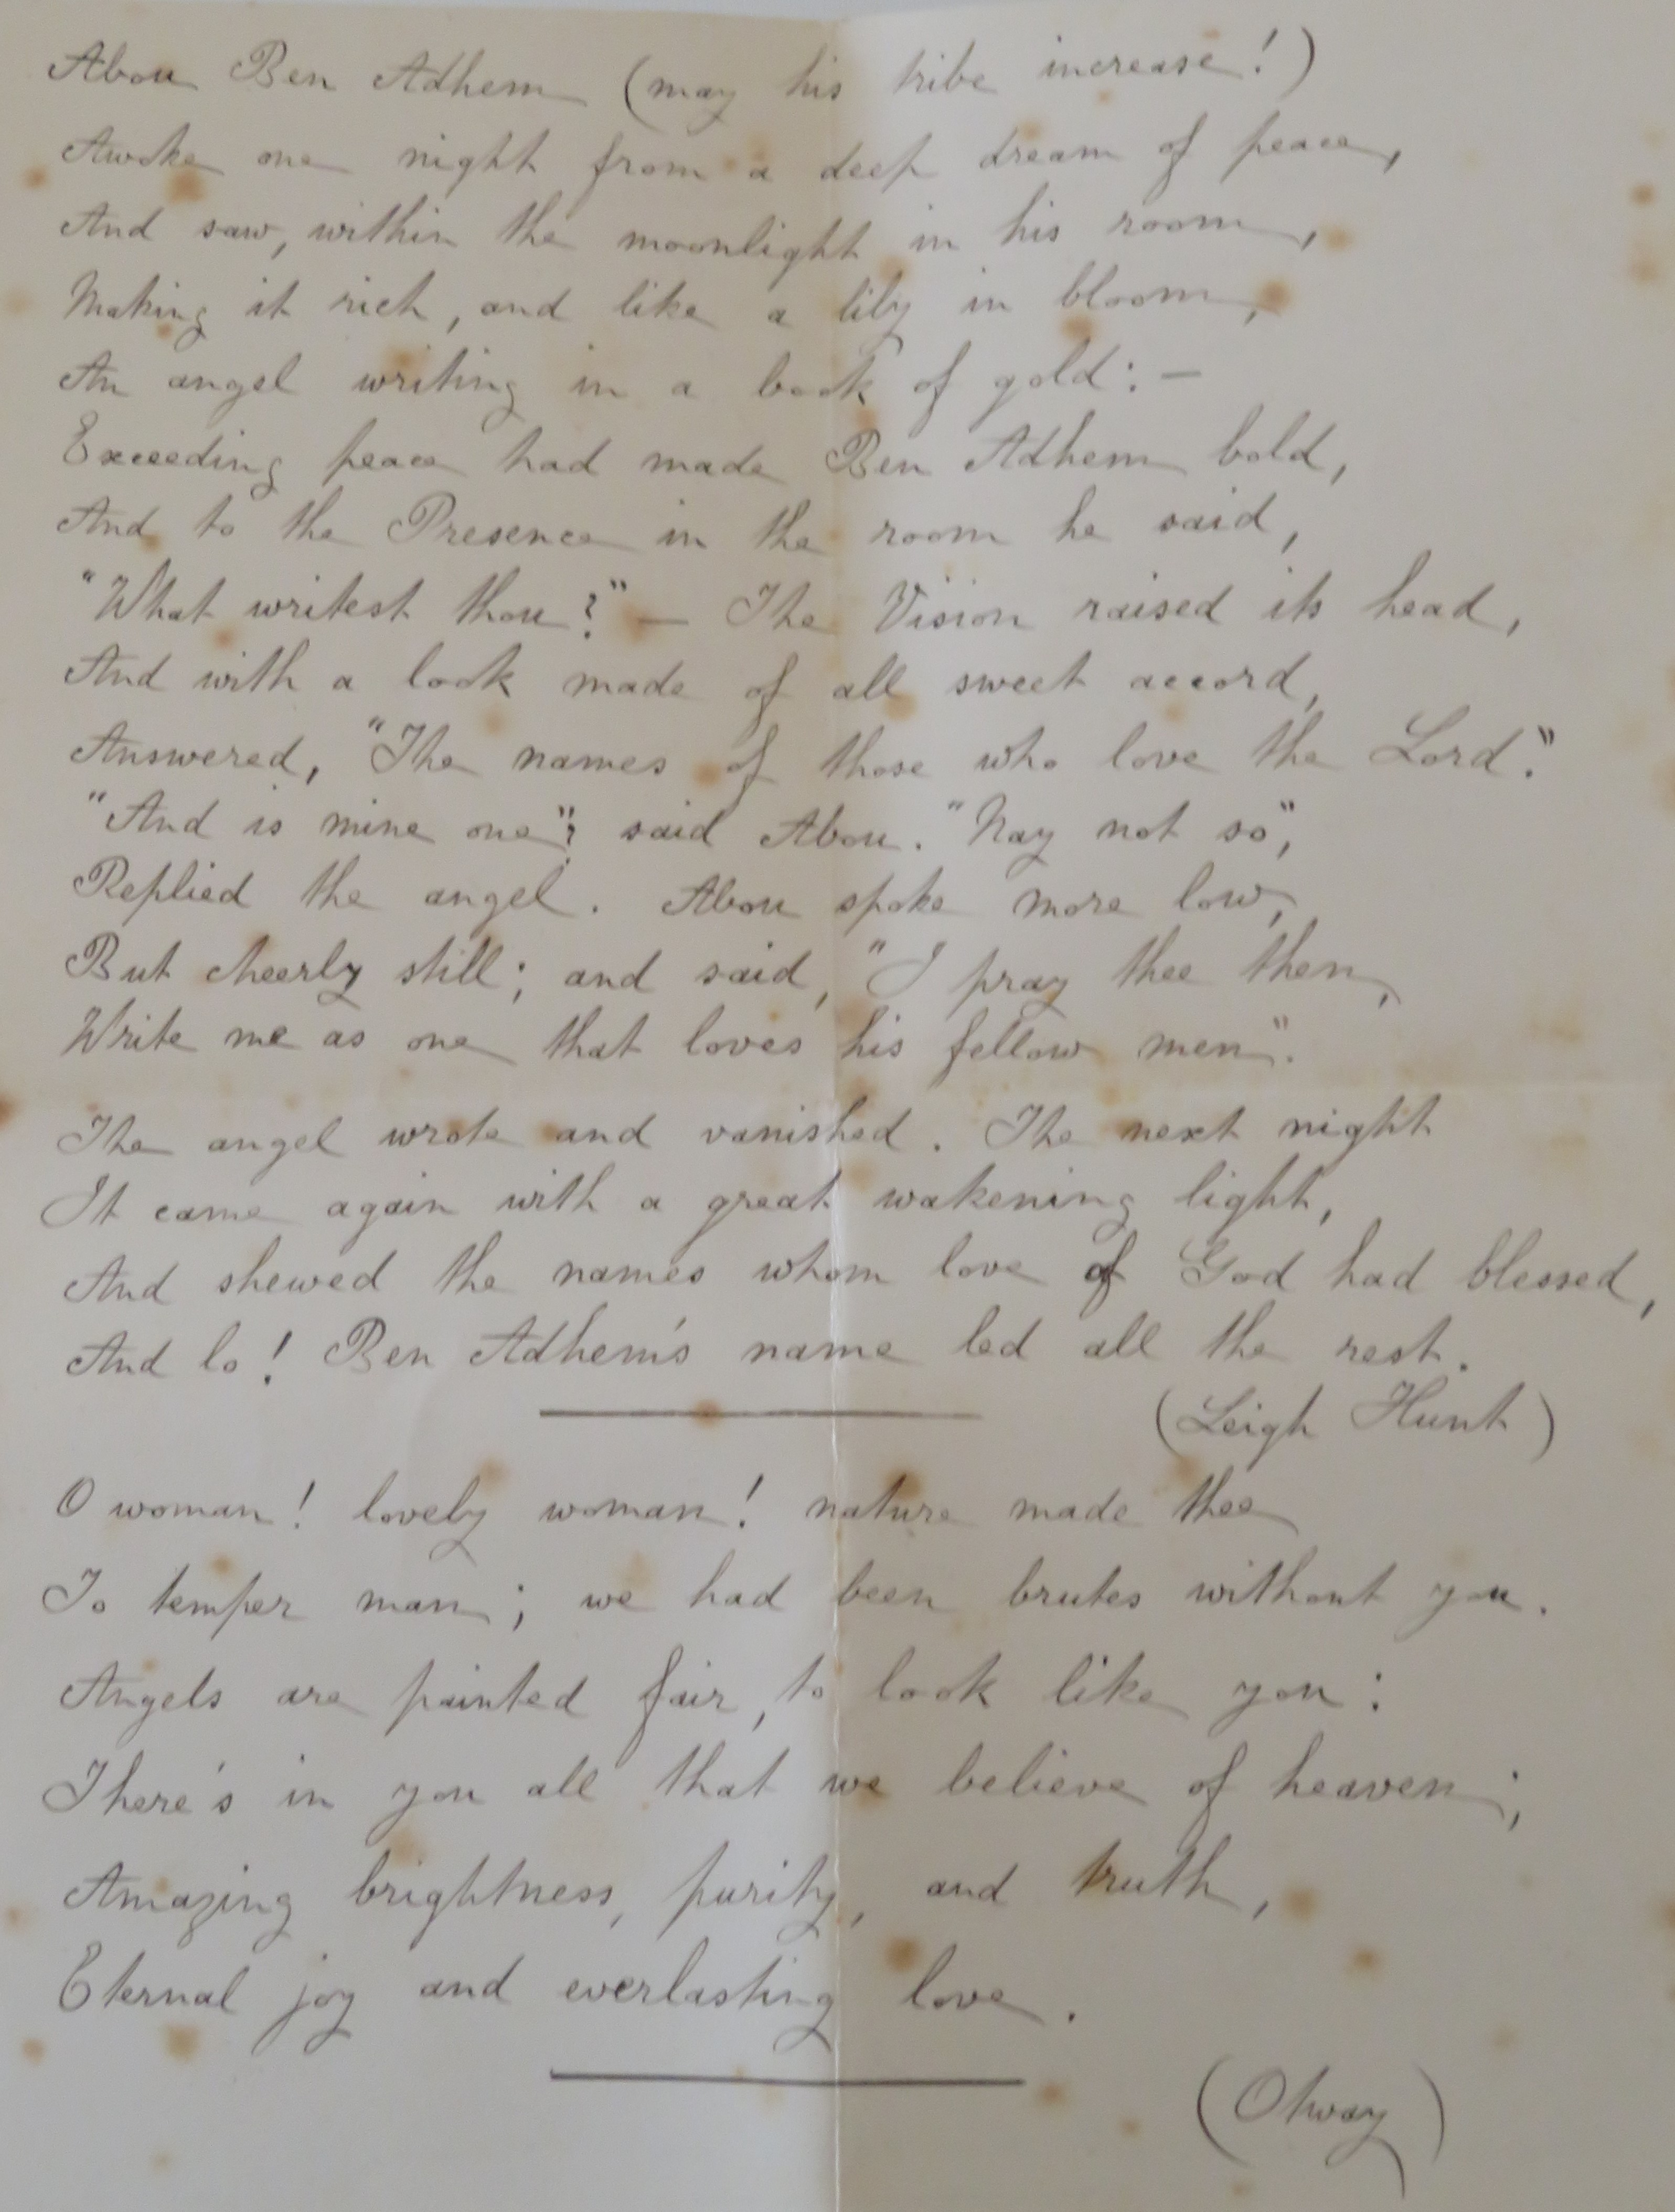 Abou Ben Adhem (may his tribe increase!)
Awoke one night from a deep dream of peace,
And saw, within the moonlight in his room,
Making it rich, and like a lily in bloom,
An angel writing in a book of gold:—
Exceeding peace had made Ben Adhem bold,
And to the Presence in the room he said,
"What writest thou?" — The Vision raised its head,
And with a look made of all sweet accord,
Answered, "The names of those who love the Lord."
"And is mine one"? said Abou. "Nay not so",
Replied the angel. Abou spoke more low,
But cheerly still; and said, "I pray thee then,
Write me as one that loves his fellow men".
The angel wrote and vanished. The next night
It came again with a great wakening light,
And shewed the names whom love of God had blessed,
And lo! Ben Adhem's name led all the rest.
(Leigh Hunt)
O woman! lovely woman! nature made thee
To temper man; we had been brutes without you.
Angels are painted fair, to look like you:
There's in you all that we believe of heaven;
Amazing brightness, purity, and truth,
Eternal joy and everlasting love.
(Otway)